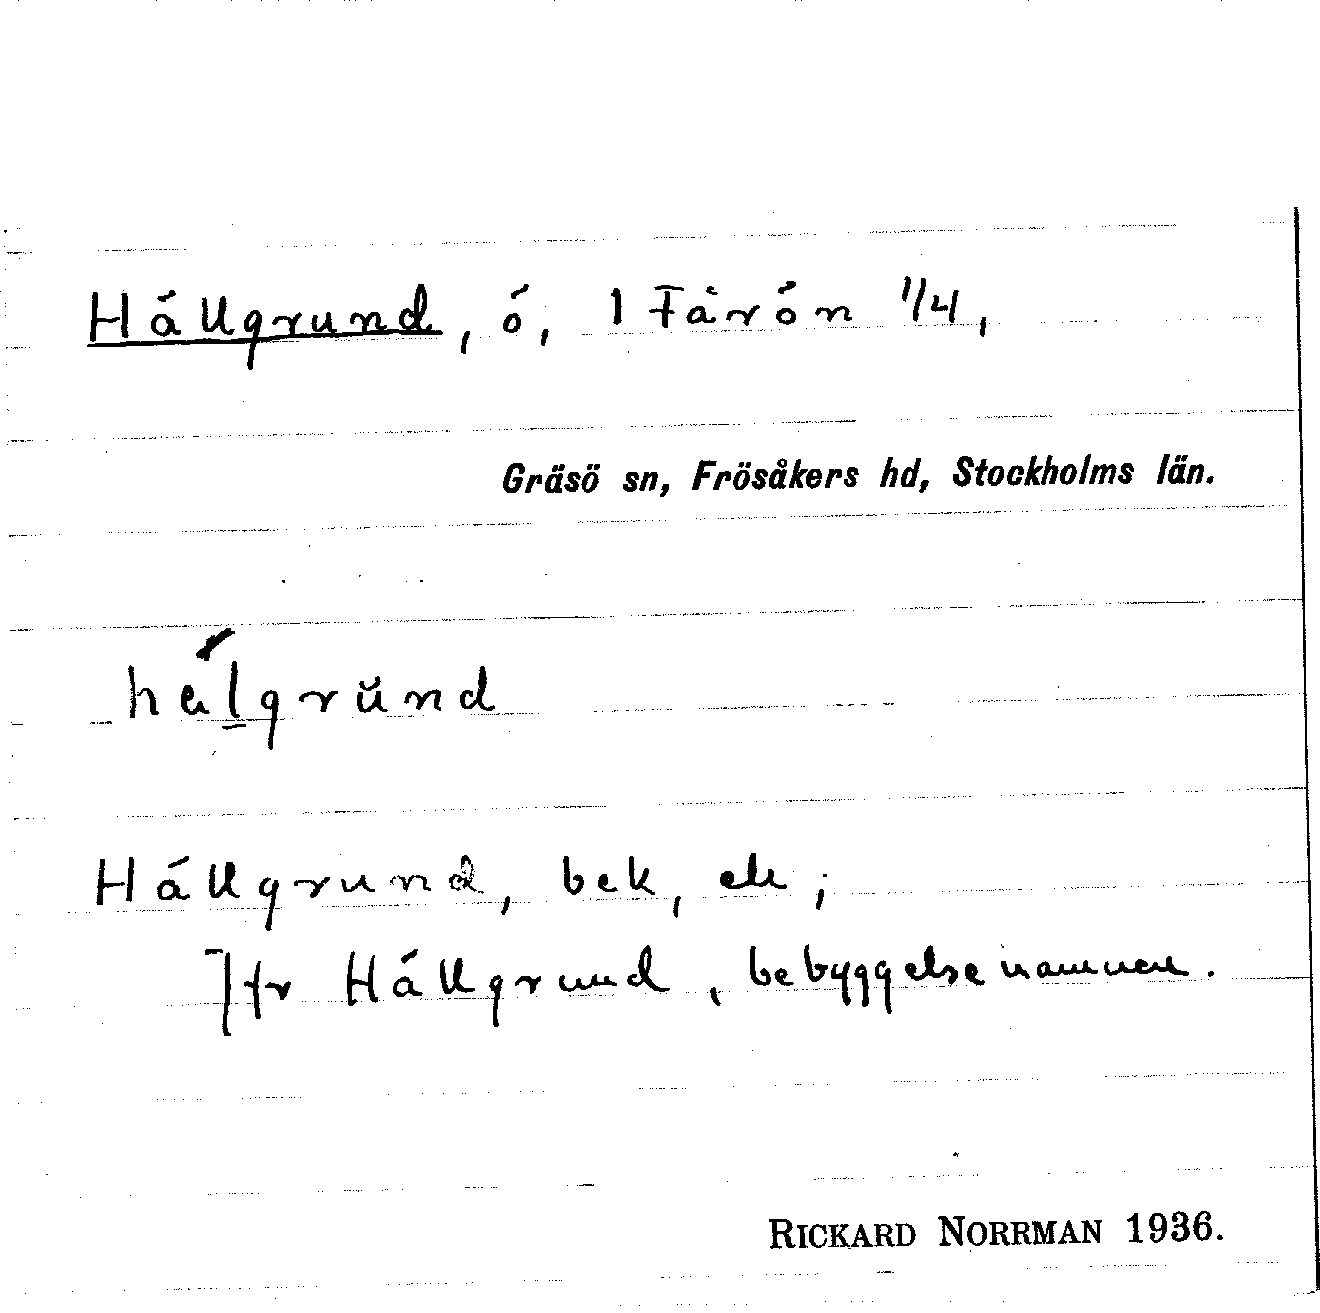 Hällgrund, ö, 1 Fårön 1/4,
Gräsö sn, Frösåkers hd, Stockholms län.
Hällgrund, bek, ek;
Jfr Hällgrund, bebyggelsenamnen.
RICKARD NORRMAN 1936.